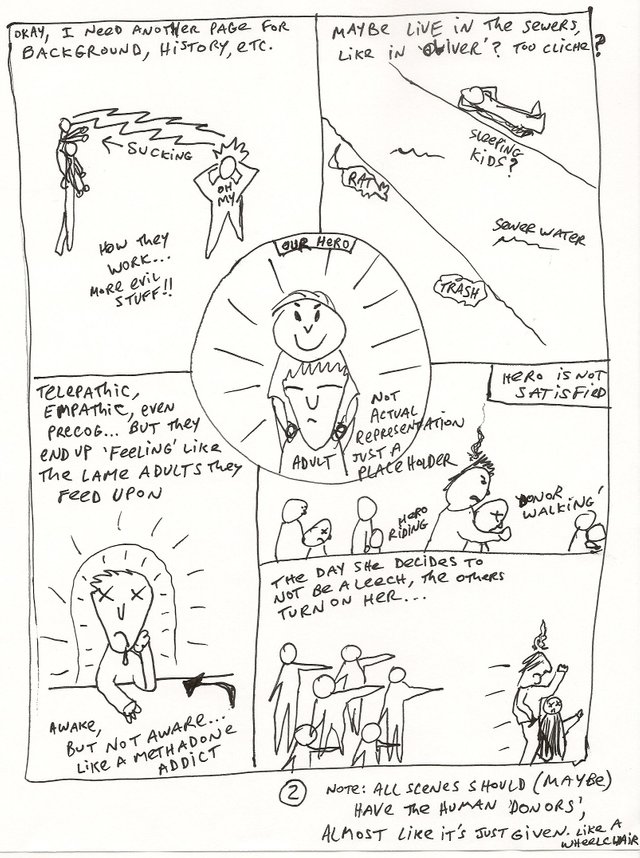 OKAY, I NEED ANOTHER PAGE FOR
BACKGROUND, HISTORY, ETC.
SUCKING
OH
MY
HOW THEY
WORK...
MORE EVIL
STUFF!!
MAYBE LIVE IN THE SEWERS,
LIKE IN 'OLIVER'? TOO CLICHE?
SLEEPING
KIDS?
RAT
SEWER WATER
TRASH
OUR HERO
ADULT
NOT
ACTUAL
REPRESENTATION
JUST A
PLACEHOLDER
TELEPATHIC,
EMPATHIC, EVEN
PRECOG... BUT THEY
END UP 'FEELING' LIKE
THE LAME ADULTS THEY
FEED UPON
AWAKE,
BUT NOT AWARE...
LIKE A METHADONE
ADDICT
HERO IS NOT
SATISFIED
HERO
RIDING
'DONOR
WALKING'
THE DAY SHE DECIDES TO
NOT BE A LEECH, THE OTHERS
TURN ON HER...
2
NOTE: ALL SCENES SHOULD (MAYBE)
HAVE THE HUMAN 'DONORS',
ALMOST LIKE IT'S JUST GIVEN. LIKE A
WHEELCHAIR